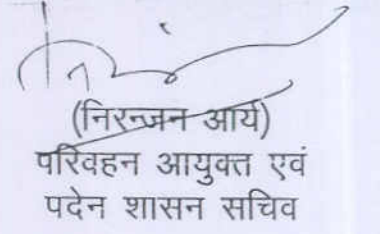 (निरन्जन आर्य)
परिवहन आयुक्त एवं
पदेन शासन सचिव